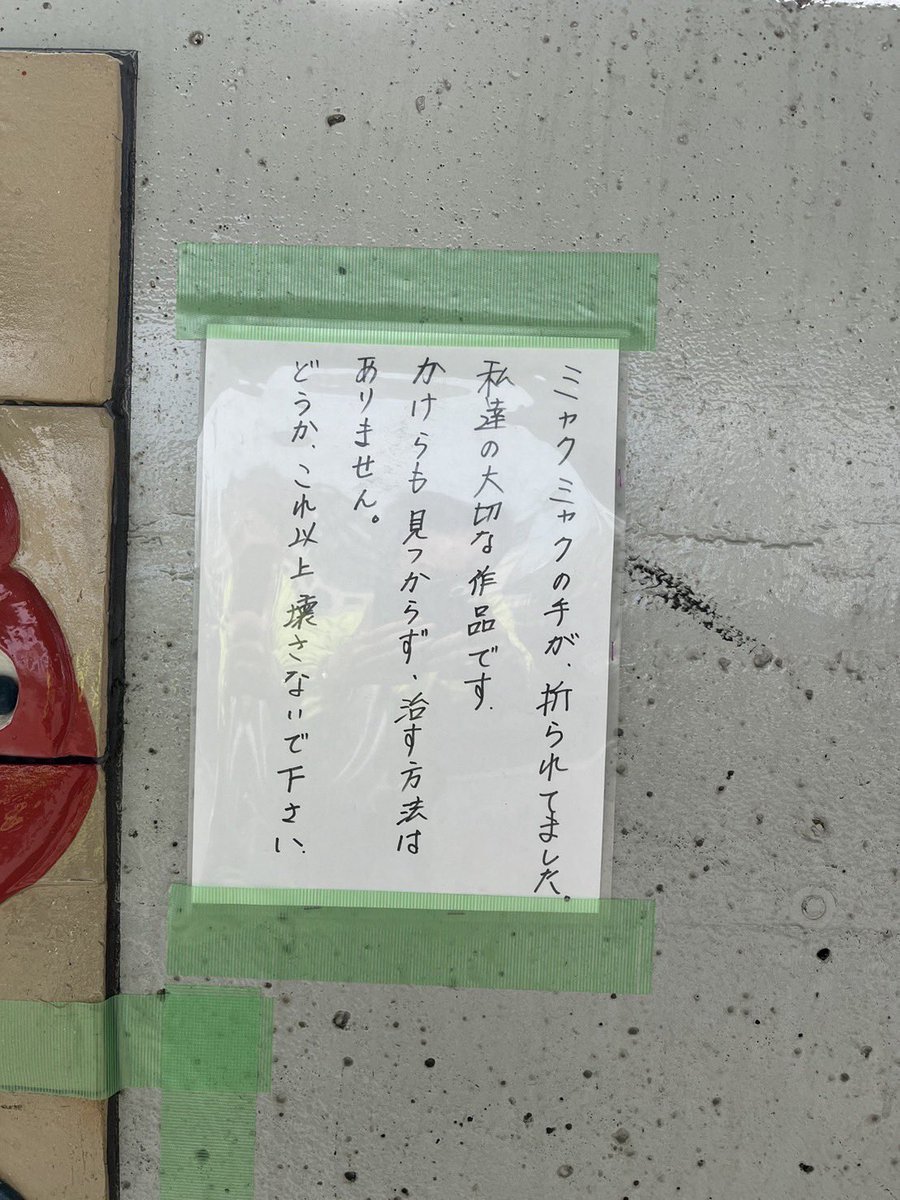 ミャクミャクの手が、折られてました。
私達の大切な作品です.
かけらも見つからず、治す方法は
ありません。
どうか、これ以上壊さないで下さい.